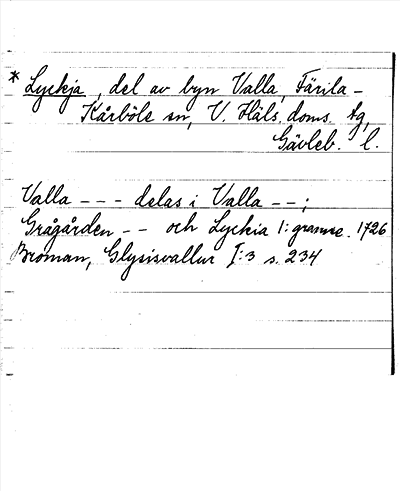 * Lyckja, del av byn Valla, Färila-
Kårböle sn, V. Häls. doms. tg,
Gävleb. l.
Valla --- delas i Valla --;
Grågården -- och Lyckia 1: granne. 1726
Broman, Glysisvallur I:3 s. 234